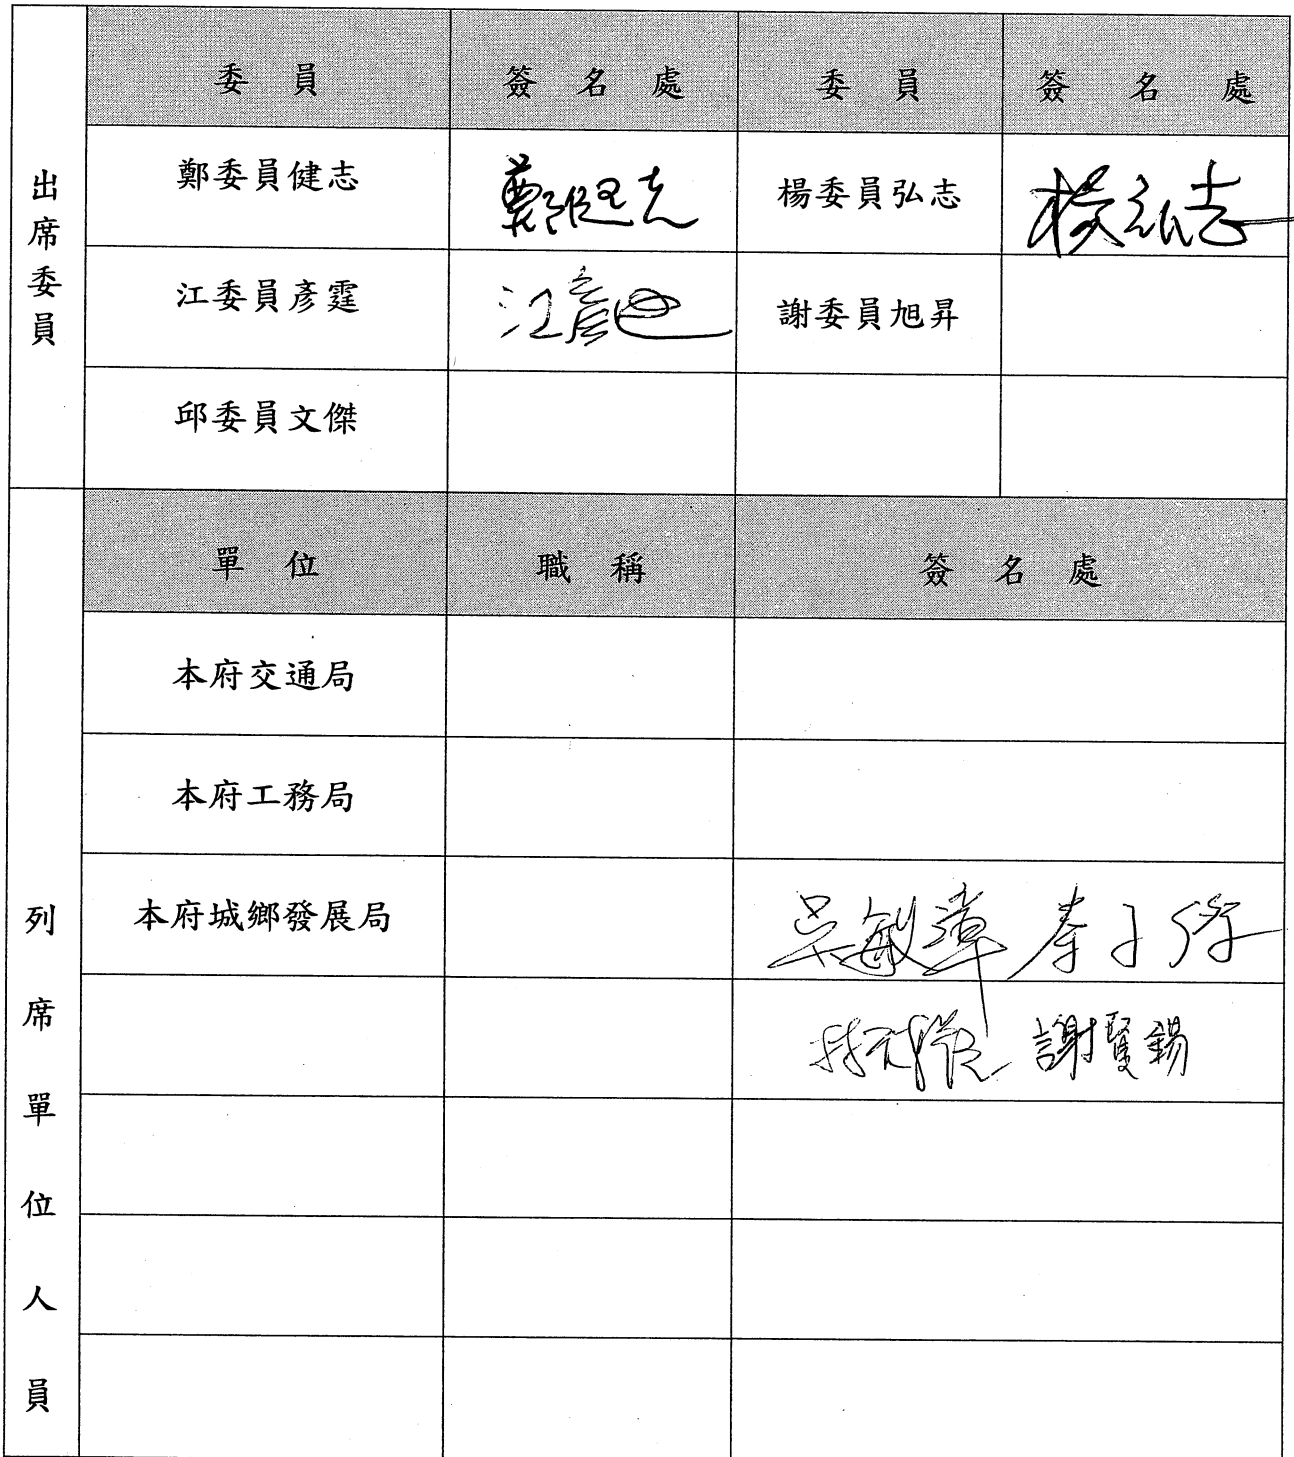 出席委員
委員 簽名處 委員 簽名處
鄭委員健志 鄭健志 楊委員弘志 楊弘志
江委員彥霆 江彥霆 謝委員旭昇
邱委員文傑
列席單位人員
單位 職稱 簽名處
本府交通局
本府工務局
本府城鄉發展局 吳敏漳
謝賢錫